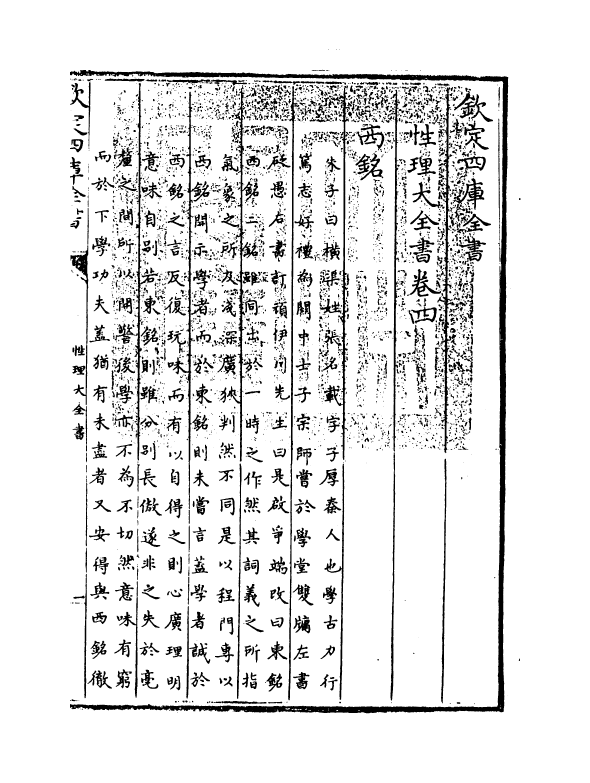 欽定四庫全書
性理大全書卷四
西銘
朱子曰橫渠姓張名載字子厚秦人也學古力行
篤志好禮為關中士子宗師嘗於學堂雙牖左書
砭愚右書訂頑伊川先生曰是啟爭端改曰東銘
西銘二銘雖同出於一時之作然其詞義之所指
氣象之所及淺深廣狹判然不同是以程門專以
西銘開示學者而於東銘則未嘗言蓋學者誠於
西銘之言反復玩味而有以自得之則心廣理明
意味自别若東銘則雖分别長傲遂非之失於毫
釐之間所以開警後學亦不為不切然意味有窮
而於下學功夫蓋猶有未盡者又安得與西銘徹
欽定四庫全書
性理大全書
一